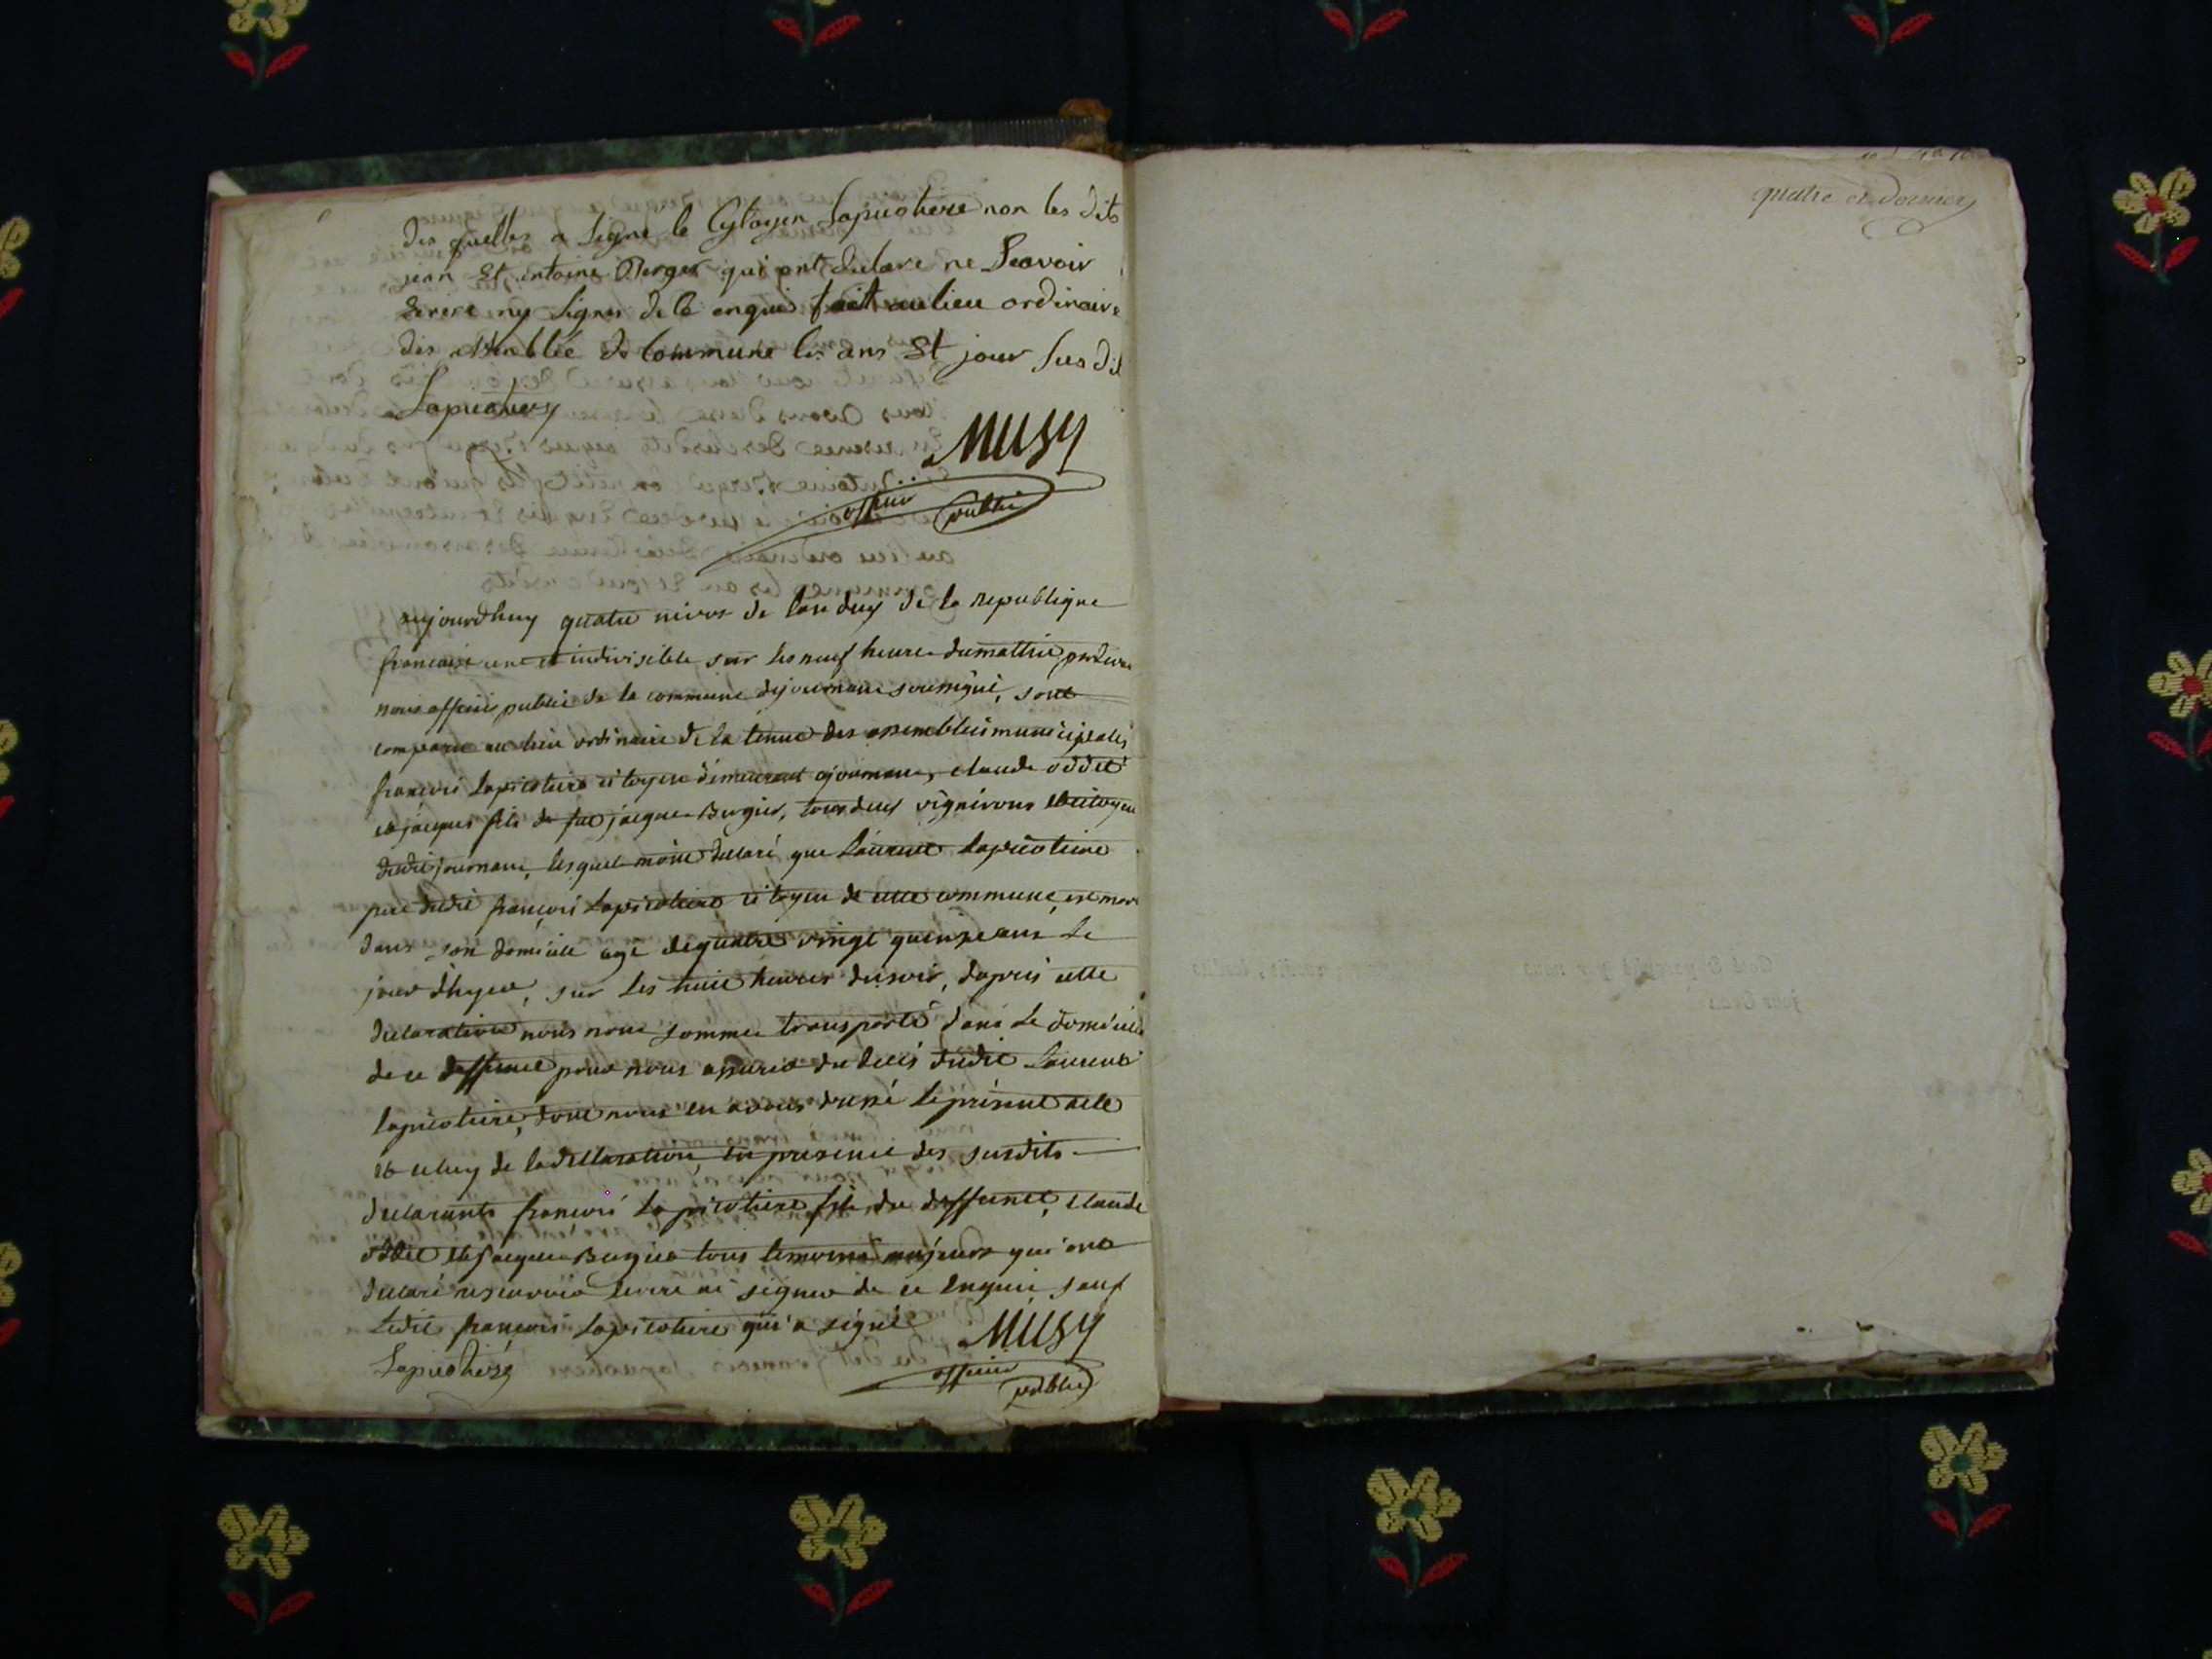 des quelles a Signe le Cytoyen Lapicotiere non les dits
jean Et entoine Berger qui ont declare ne Scavoir
Ecrire ny Signer de ce enquis fait au lieu ordinaire
des assemblée de Commune les ans Et jour Sus dit
Lapicotiere
MUSY
officier public
aujourdhuy quatre nivos de lan deux de la republique
francaise une et indivisible sur les neuf heures du mattin pardevan
nous officier public de la commune dejournans soussigné, sont
comparu au lieu ordinaire de la tenue des assemblées municipales
françois Lapicotiere citoyen demeurant ajournans, claude oddet
et jacques fils de feu jacques Burgier, tous deux vignerons et citoyen
dudit journans, lesquels mont declaré que Laurent Lapicotiere
pere dudit françois Lapicotiere citoyen de cette commune, est mort
dans son domicile agé de quatre vingt quinze ans Le
jour dhyer, sur les huit heures du soir, dapres cette
declaration nous nous sommes transporté dans Le domicile
de ce deffunct pour nous assurer du deces dudit Laurent
lapicotiere, dont nous en avons dressé le présent acte
et celuy de la declaration, en presence des susdits
declarants françois Lapicotiere fils du deffunct, claude
oddet et jacques Burgier tous temoins majeurs qui ont
declaré ne scavoir écrire ni signer de ce enquis, sauf
Ledit françois Lapicotiere qui a signé
MUSY
Lapicotiere
officier public
quatre et dernier